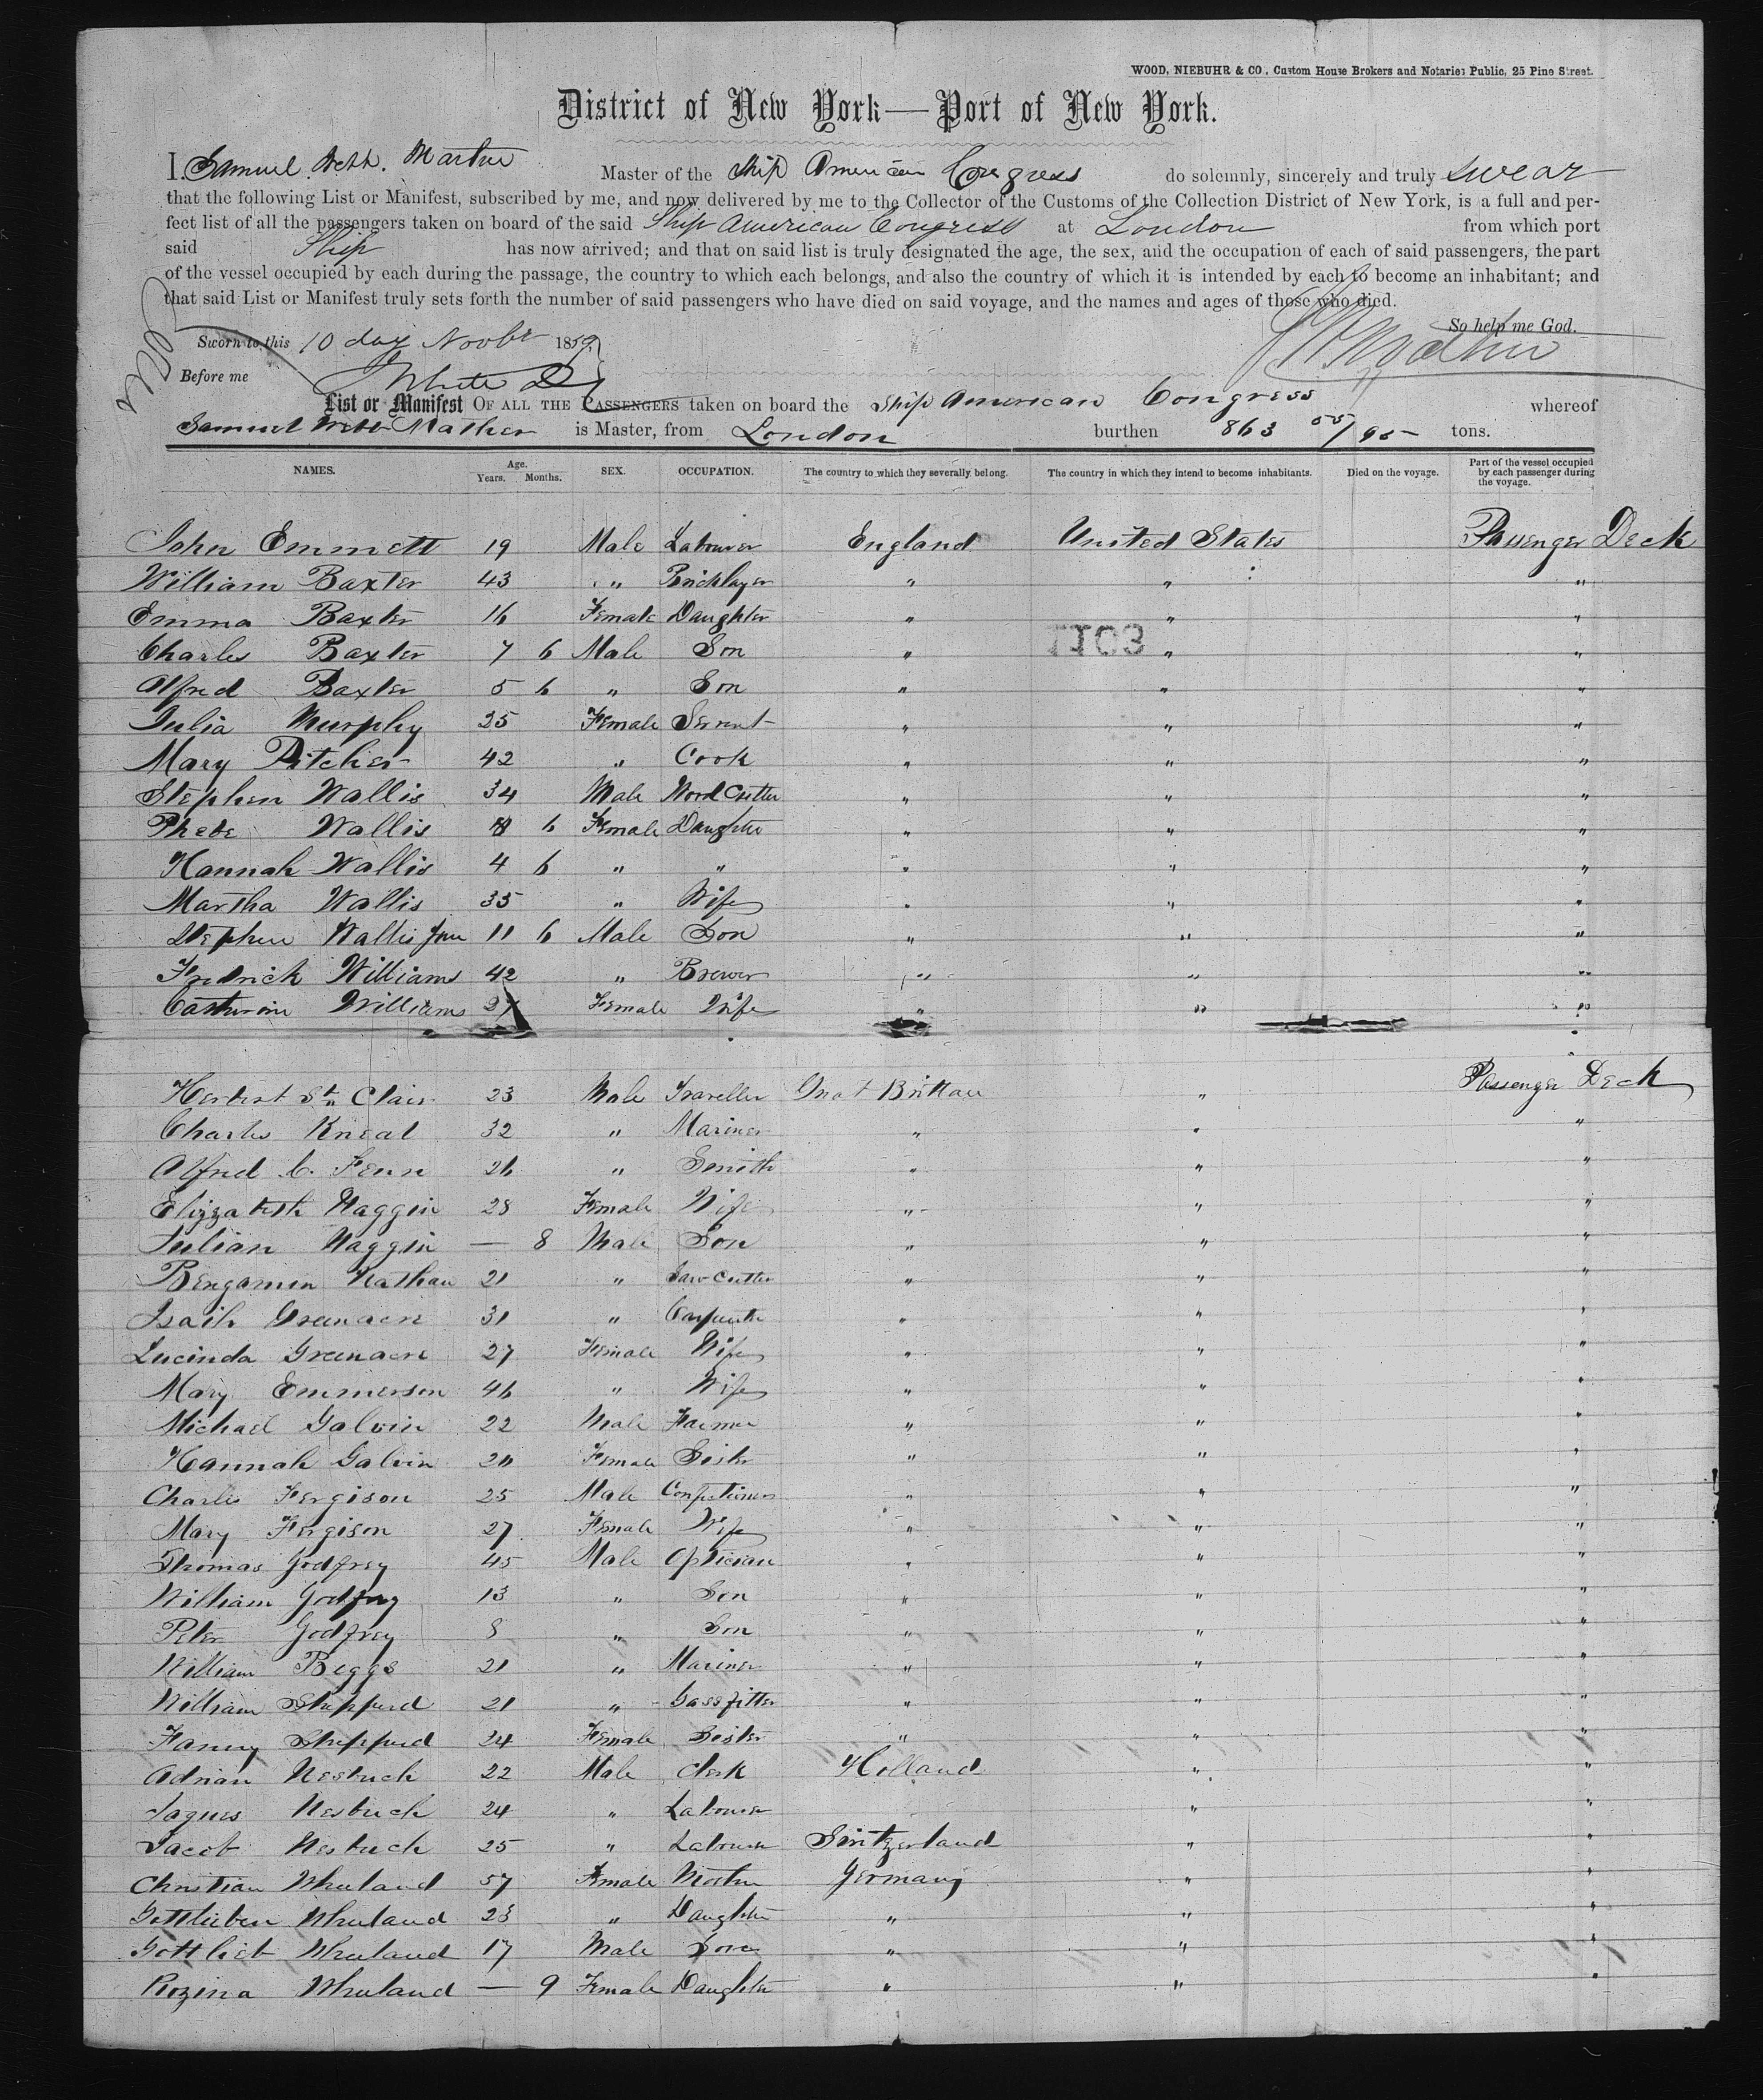 WOOD, NIEBUHR & CO., Custom House Brokers and Notaries Public, 25 Pine Street.
District of New York—Port of New York.
I, Samuel Webb Mather Master of the Ship American Congress do solemnly, sincerely and truly swear
that the following List or Manifest, subscribed by me, and now delivered by me to the Collector of the Customs of the Collection District of New York, is a full and per-
fect list of all the passengers taken on board of the said Ship American Congress at London from which port
said Ship has now arrived; and that on said list is truly designated the age, the sex, and the occupation of each of said passengers, the part
of the vessel occupied by each during the passage, the country to which each belongs, and also the country of which it is intended by each to become an inhabitant; and
that said List or Manifest truly sets forth the number of said passengers who have died on said voyage, and the names and ages of those who died.
So help me God.
Sworn to this 10 day Novbr 1859
Before me White
List or Manifest OF ALL THE PASSENGERS taken on board the Ship American Congress whereof
Samuel Webb Mather is Master, from London burthen 863 55/95 tons.
NAMES. Age. Years. Months. SEX. OCCUPATION. The country to which they severally belong. The country in which they intend to become inhabitants. Died on the voyage. Part of the vessel occupied by each passenger during the voyage.
John Emmett 19 Male Labourer England United States Passenger Deck
William Baxter 43 " Bricklayer " " "
Emma Baxter 16 Female Daughter " " "
1103
Charles Baxter 7 6 Male Son " " "
Alfred Baxter 5 6 " Son " " "
Julia Murphy 25 Female Servnt " " "
Mary Pitcher 42 " Cook " " "
Stephen Wallis 34 Male Wood Cutter " " "
Phebe Wallis 6 Female Daughter " " "
Hannah Wallis 4 6 " " " " "
Martha Wallis 35 " Wife " " "
Stephen Wallis Jun 11 6 Male Son " " "
Fredrick Williams 42 " Brewer " " "
Catturine Williams 27 Female Wife " " "
Herbert St Clair 23 Male Traveller Great Brittan " Passenger Deck
Charles Kneal 32 " Mariner " " "
Alfred C. Fenn 26 " Smith " " "
Elizzabeth Haggin 28 Female Wife " " "
Julian Haggin — 8 Male Son " " "
Bengamin Nathan 21 " Saw Cutter " " "
Isaih Greenacre 31 " Carpenter " " "
Lucinda Greenacre 27 Female Wife " " "
Mary Emmerson 46 " Wife " " "
Michael Galvin 22 Male Farmer " " "
Hannah Galvin 20 Female Sister " " "
Charles Fergison 25 Male Confectioner " " "
Mary Fergison 27 Female Wife " " "
Thomas Godfrey 45 Male Optician " " "
William Godfrey 13 " Son " " "
Peter Godfrey 8 " Son " " "
William Beggs 21 " Mariner " " "
William Shippard 21 " Gassfitter " " "
Fanny Shippard 24 Female Sister " " "
Adrian Nesbuch 22 Male Clerk Holland " "
Jaques Nesbuch 24 " Labourer " "
Jacob Nesbuch 25 " Labourer Switzerland " "
Christian Whuland 57 Female Mother Germany " "
Gottlieben Whuland 23 " Daughter " " "
Gottlieb Whuland 17 Male Son " " "
Rozina Whuland — 9 Female Daughter " " "